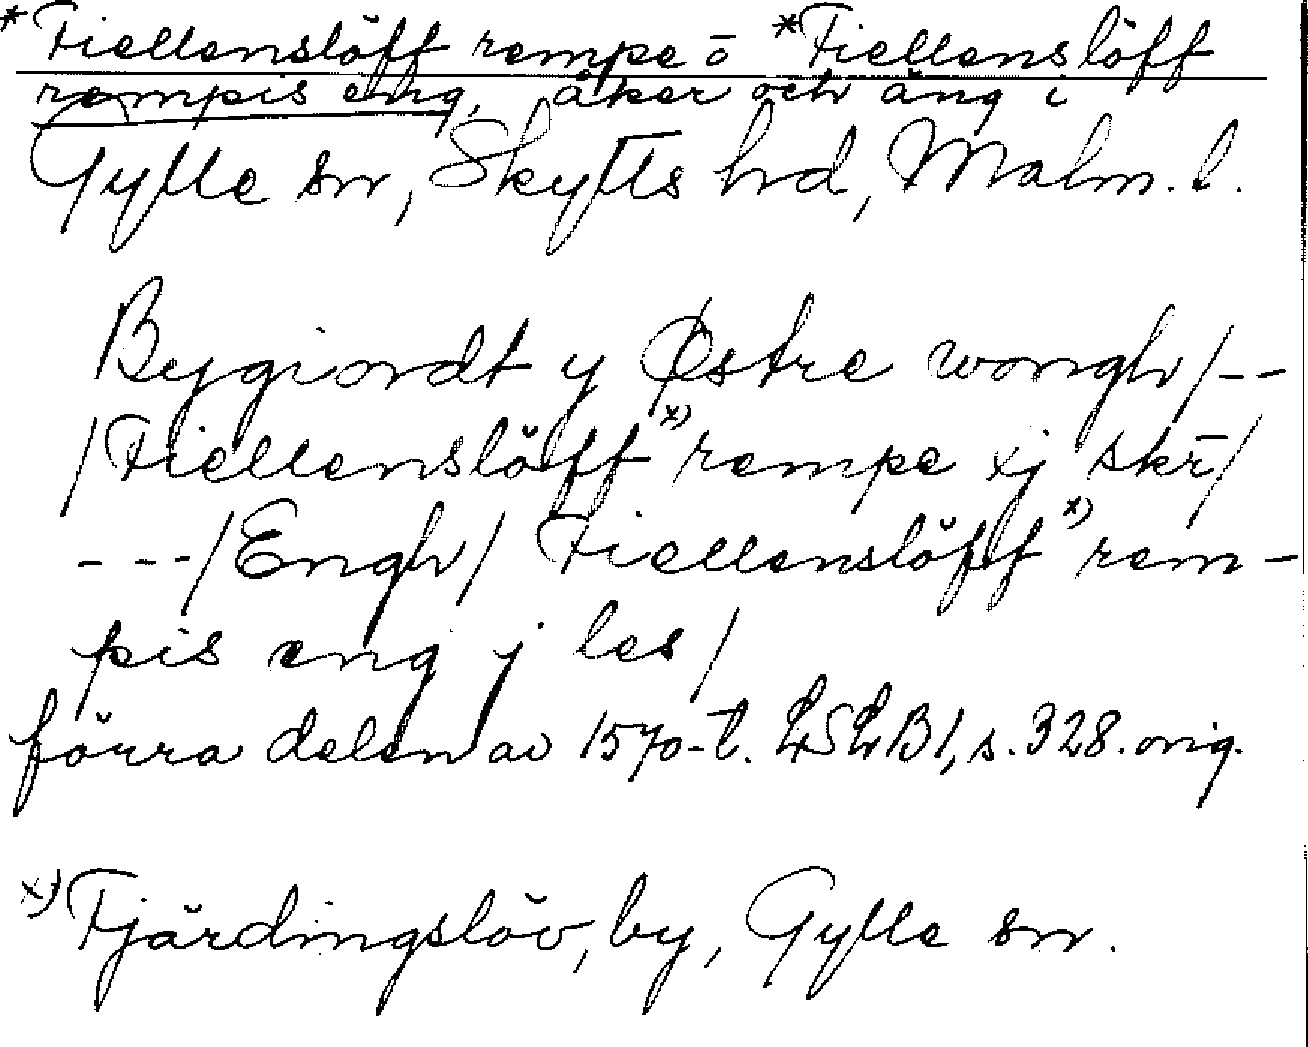 *Fiellenslöff rempe o *Fiellenslöff
rempis eng, åker och äng i
Gylle sn, Skytts hd, Malm. l.
Bygiordt y Østre wongh/--
/Fiellenslöff x) rempe xj skr̄/
---/Engh/ Fiellenslöff x) rem-
pis eng j les/
förra delen av 1570-t. LSLB1, s. 328. orig.
x) Fjärdingslöv, by, Gylle sn.